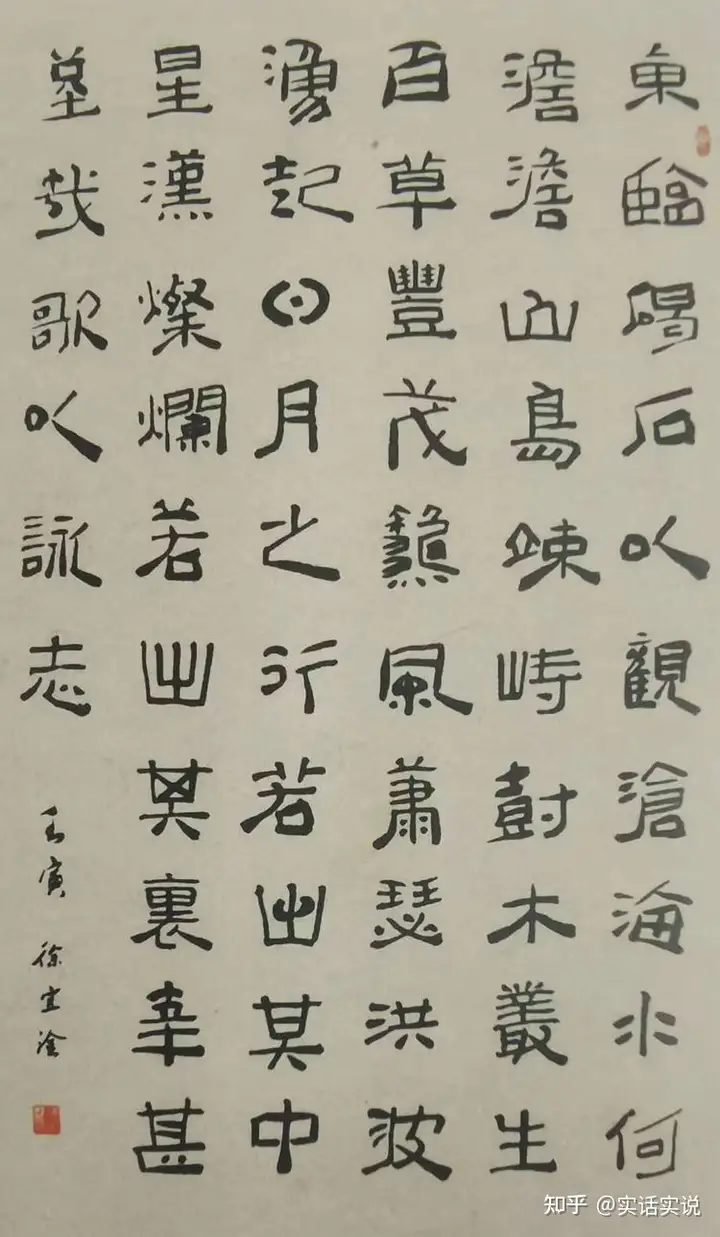 東臨碣石以觀滄海水何
澹澹山島竦峙樹木叢生
百草豐茂秋風蕭瑟洪波
湧起日月之行若出其中
星漢燦爛若出其裏幸甚
至哉歌以詠志
壬寅 徐
知乎 @实话实说